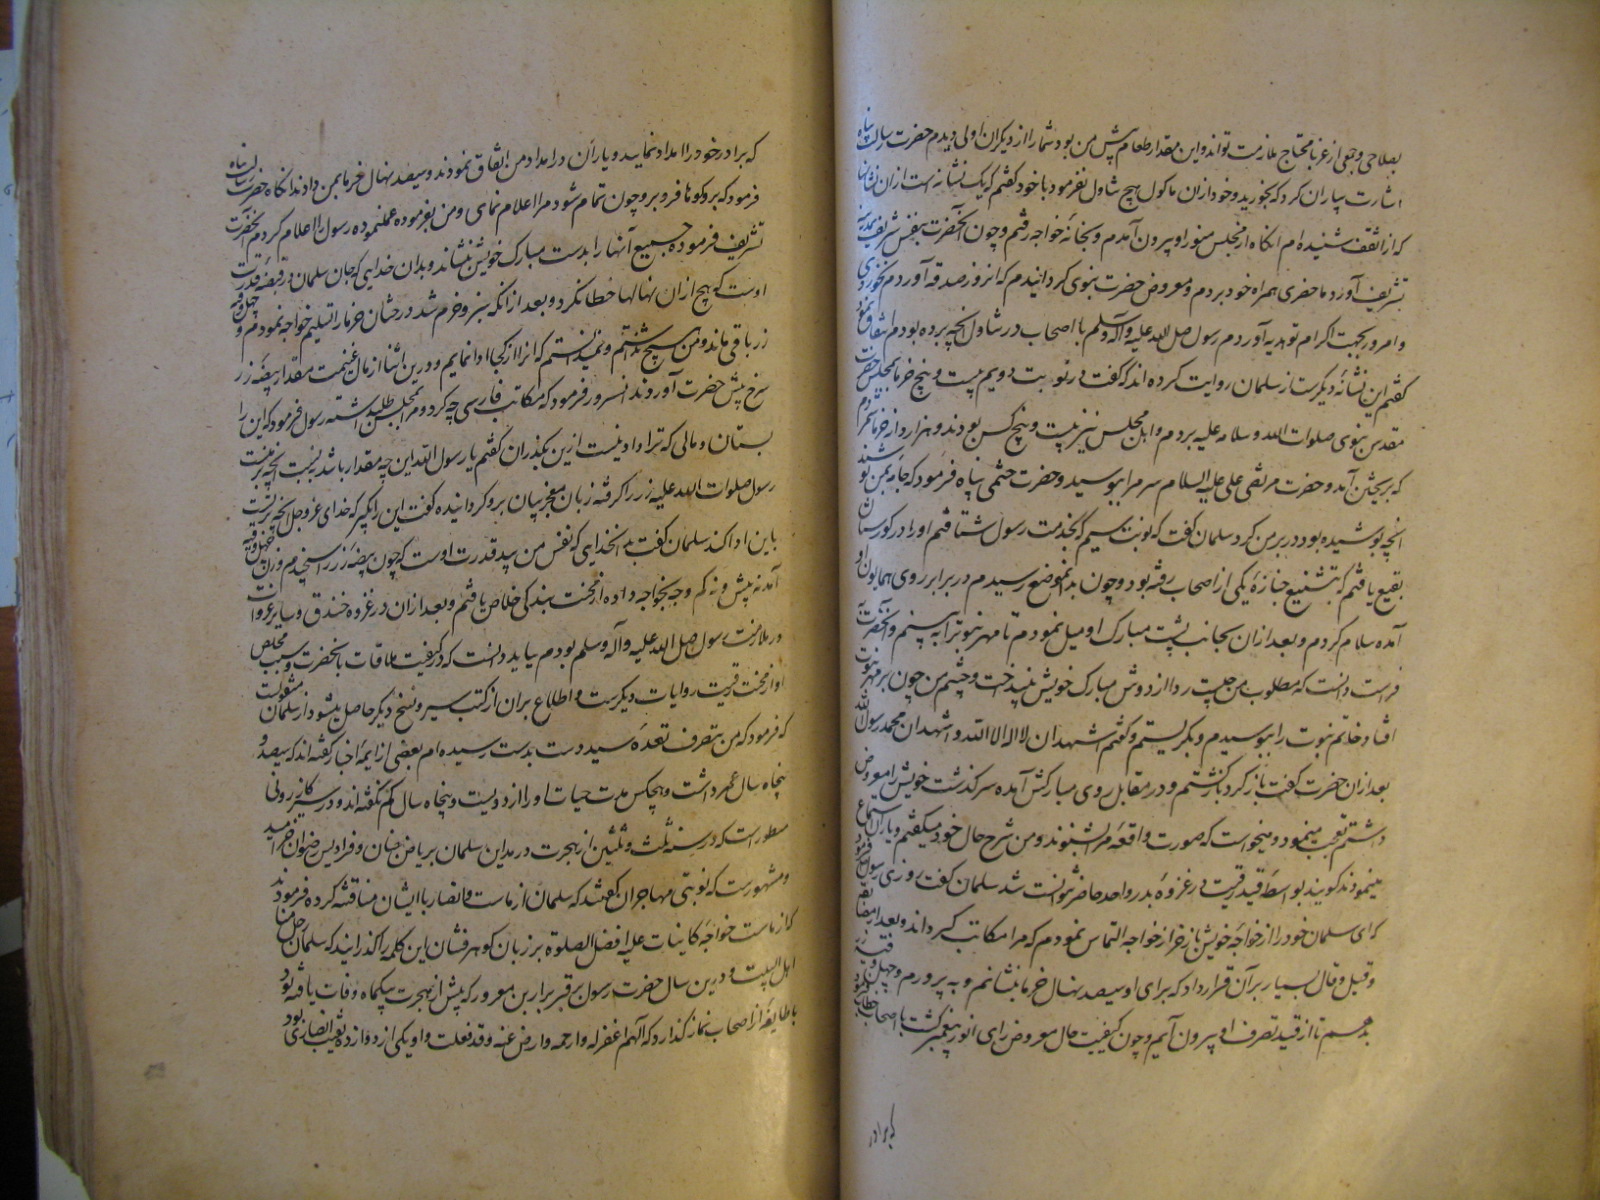 بصلاحی و جمعی از غربا محتاج ملازمت تواند و این مقدار طعام پیش من بود شما را از دیگران اولی دیدم حضرت رسالت پناه
اشارت بیاران کرد که بخورید و خود ازان ماکول هیچ تناول نفرمود با خود گفتم که یک نشانه است ازان نشانها
که از اسقف شنیده ام انگاه از مجلس منور او بیرون آمدم و بخانهٔ خواجه رفتم و چون آنحضرت بنفس شریف بمدینه
تشریف آورد ماحضری همراه خود بردم و معروض حضرت نبوی گردانیدم که انروز صدقه آوردم نخوردی
و امروز بجهت اکرام تو هدیه آوردم رسول صلی الله علیه وآله وسلم با اصحاب در تناول آنچه برده بودم اتفاق نمود
گفتم این نشانهٔ دیگرست از سلمان روایت کرده اند که گفت در نوبت دویم بیست و پنج خرما بمجلس حضرت
مقدس نبوی صلوات الله وسلامه علیه بردم و اهل مجلس نیز بیست و پنج کس بودند و هزار دانه خرما شمردم
که بربخش آمد و حضرت مرتضی علی علیه السلام سر مرا ببوسید و حضرت ختمی پناه فرمود که جامه بمن پوشند
آنچه پوشیده بود در بر من کرد سلمان گفت که نوبت سیم که بخدمت رسول شتافتم او را در گورستان
بقیع یافتم که بتشییع جنازهٔ یکی از اصحاب رفته بود و چون بدانموضع رسیدم در برابر روی همایون او
آمده سلام کردم و بعد ازان بجانب پشت مبارک او میل نمودم تا مهر نبوت را به بینم و آنحضرت به
فراست دانست که مطلوب من چیست ردا از دوش مبارک خویش بینداخت و چشم من چون بر مهر نبوت
افتاد خاتم نبوت را ببوسیدم و بگریستم و گفتم اشهد ان لا اله الا الله و اشهد ان محمد رسول الله
بعد ازان حضرت گفت بازگرد بازگشتم و در مقابل روی مبارکش آمده سرگذشت خویش را معروض
داشتم تعجب مینمود و میخواست که صورت واقعه مرا بشنوند و من شرح حال خود میگفتم و یاران استماع
مینمودند گویند بواسطهٔ قید رقیت در غزوهٔ بدر و احد حاضر نتوانست شد سلمان گفت روزی رسول فرمود
که ای سلمان خود را از خواجه خویش باز خر از خواجه التماس نمودم که مرا مکاتب گرداند و بعد از مضایقه
و قیل و قال بسیار بر آن قرار داد که برای او سیصد نهال خرما بنشانم و به پرورم و چهل وقیه زر
بدهم تا از قید تصرف او بیرون آیم و چون کیفیت حال معروض رای انور پیغمبر گشت با اصحاب خطاب کرد
که برادر
که برادر خود را امداد نمایید و یاران در امداد من اتفاق نمودند و سیصد نهال خرما بمن دادند انگاه حضرت رسالت پناه
فرمود که برو گوها فرو بر و چون تمام شود مرا اعلام نمای و من بفرموده عمل نموده رسول را اعلام کردم آنحضرت
تشریف فرموده جمیع آنها را بدست مبارک خویش بنشاند و بدان خدایی که جان سلمان در قبضهٔ قدرت
اوست که هیچ ازان نهالها خطا نکرد و بعد ازانکه سبز و خرم شد درختان خرما را تسلیم خواجه نمودم و چهل وقیه
زر باقی ماند و من هیچ نداشتم و نمیدانستم که انرا از کجا ادا نمایم و درین اثنا از مال غنیمت مقدار بیضهٔ زر
سرخ پیش حضرت آوردند انسرور فرمود که مکاتب فارسی چه کرد و مرا بمجلس طلب داشته رسول فرمود که این را
بستان و مالی که ترا دادنیست ازین بگذران گفتم یا رسول الله این چه مقدار باشد به نسبت آنچه بر منست
رسول صلوات الله علیه زر را گرفته زبان معجز بیان برو گردانیده گفت این را بگیر که خدای عز و جل آنچه بر تست
باین ادا کند سلمان گفت بدانخدایی که نفس من بید قدرت اوست که چون بیضهٔ زر را سنجیدم وزن چهل وقیه
آمد نه بیش و نه کم و وجه بخواجه داده از محنت بندگی خلاص یافتم و بعد ازان در غزوه خندق و سایر غزوات
در ملازمت رسول صلی الله علیه وآله وسلم بودم بباید دانست که در کیفیت ملاقات با آنحضرت و سبب مخلص
او از محنت رقیت روایات دیگرست و اطلاع بران از کتب سیر و نسخ دیگر حاصل میشود از سلمان منقولست
که فرمود که من بتصرف تعدهٔ سید دست بدست رسیده ام بعضی از ایمهٔ اخبار گفته اند که سیصد و
پنجاه سال عمر داشت و هیچکس مدت حیات او را از دویست و پنجاه سال کم نگفته اند و در سیر کازرونی
مسطور است که در سنه ثلث و ثلثین از هجرت در مداین سلمان بریاض جنان و فرادیس رضوان خرامید
و مشهورست که نوبتی مهاجران گفتند که سلمان از ماست و انصار با ایشان مناقشه کرده فرمودند
که از ماست خواجه کاینات علیه افضل الصلوة بر زبان گوهر فشان این کلمه را گذرانید که سلمان رجل منا
اهل البیت و درین سال حضرت رسول بر قبر براء بن معرور که پیش از هجرت بیکماه وفات یافته بود
با طایفهٔ از اصحاب نماز گذارد که اللهم اغفر له وارحمه وارض عنه وقد فعلت و او یکی از دوازده نقیب انصاری بود